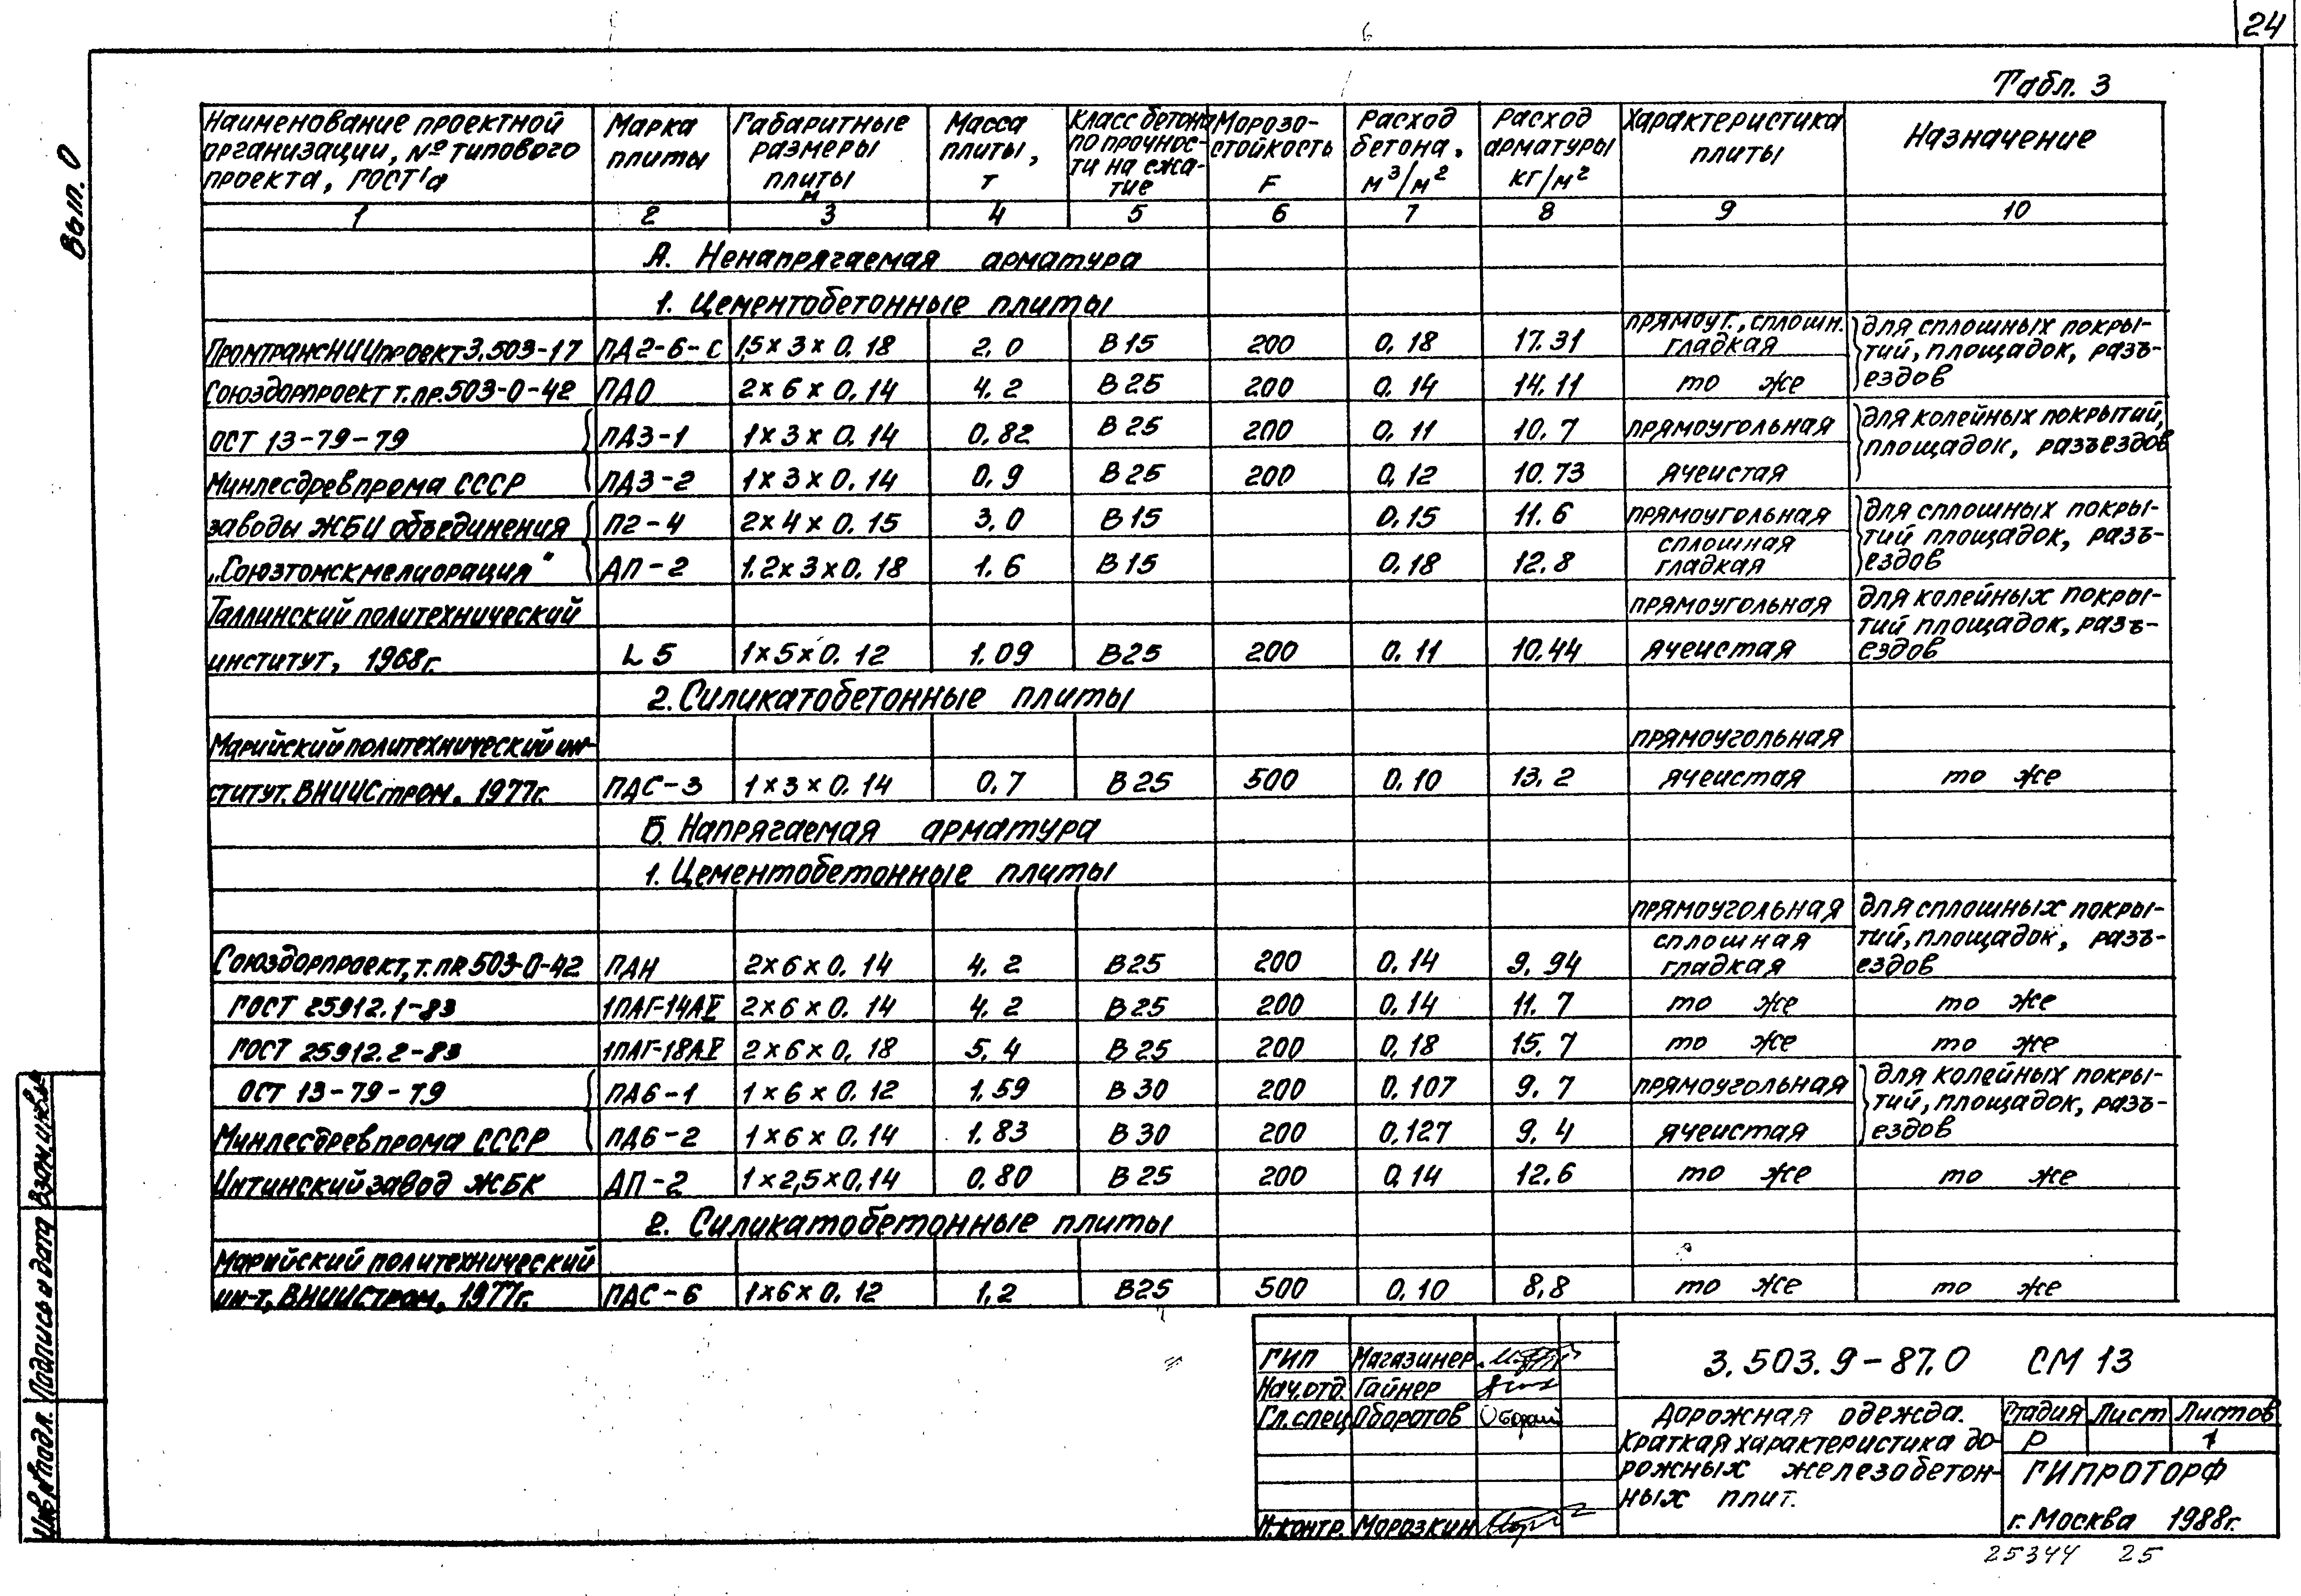 24
Вып. 0
Табл. 3
Наименование проектной организации, № типового проекта, ГОСТ'а | Марка плиты | Габаритные размеры плиты м | Масса плиты, т | Класс бетона по прочности на сжатие | Морозостойкость F | Расход бетона, м³/м² | Расход арматуры кг/м² | Характеристика плиты | Назначение
1 2 3 4 5 6 7 8 9 10
А. Ненапрягаемая арматура
1. Цементобетонные плиты
ПромтрансНИИпроект 3.503-17 ПД2-6-С 1,5×3×0.18 2.0 В15 200 0.18 17.31 прямоуг., сплошн. гладкая для сплошных покрытий, площадок, разъездов
Союздорпроект т.пр.503-0-42 ПДО 2×6×0.14 4.2 В25 200 0.14 14.11 то же
ОСТ 13-79-79 ПД3-1 1×3×0.14 0.82 В25 200 0.11 10.7 прямоугольная для колейных покрытий, площадок, разъездов
Минлесдревпрома СССР ПД3-2 1×3×0.14 0.9 В25 200 0.12 10.73 ячеистая
заводы ЖБИ объединения П2-4 2×4×0.15 3.0 В15 0.15 11.6 прямоугольная для сплошных покрытий площадок, разъездов
„Союзтомскмелиорация" АП-2 1.2×3×0.18 1.6 В15 0.18 12.8 сплошная гладкая
Таллинский политехнический прямоугольная для колейных покрытий площадок, разъездов
институт, 1968г. L 5 1×5×0.12 1.09 В25 200 0.11 10.44 ячеистая
2. Силикатобетонные плиты
Марийский политехнический ин- прямоугольная
ститут. ВНИИСтром. 1977г. ПДС-3 1×3×0.14 0.7 В25 500 0.10 13.2 ячеистая то же
Б. Напрягаемая арматура
1. Цементобетонные плиты
прямоугольная для сплошных покрытий, площадок, разъездов
Союздорпроект, т.пр 503-0-42 ПДН 2×6×0.14 4.2 В25 200 0.14 9.94 сплошная гладкая
ГОСТ 25912.1-83 1ПАГ-14АV 2×6×0.14 4.2 В25 200 0.14 11.7 то же то же
ГОСТ 25912.2-83 1ПАГ-18АV 2×6×0.18 5.4 В25 200 0.18 15.7 то же то же
ОСТ 13-79-79 ПД6-1 1×6×0.12 1.59 В30 200 0.107 9.7 прямоугольная для колейных покрытий, площадок, разъездов
Минлесдревпрома СССР ПД6-2 1×6×0.14 1.83 В30 200 0.127 9.4 ячеистая
Интинский завод ЖБК АП-2 1×2,5×0,14 0.80 В25 200 0.14 12.6 то же то же
2. Силикатобетонные плиты
Марийский политехнический
ин-т, ВНИИСтром, 1977г. ПДС-6 1×6×0.12 1,2 В25 500 0,10 8,8 то же то же
ГИП Магазинер
Нач.отд. Гайнер
Гл.спец Обаротов
Н.контр. Морозкин
3.503.9-87.0 СМ 13
Дорожная одежда.
Краткая характеристика до-
рожных железобетон-
ных плит.
Стадия Лист Листов
Р 1
ГИПРОТОРФ
г. Москва 1988г.
25344 25
Инв № подл. Подпись и дата Взам.инв.№